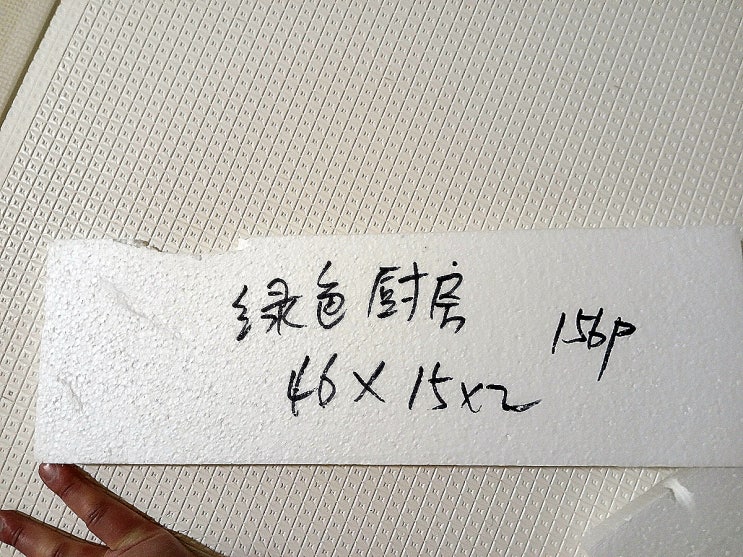 绿色厨房
156P
46×15×2